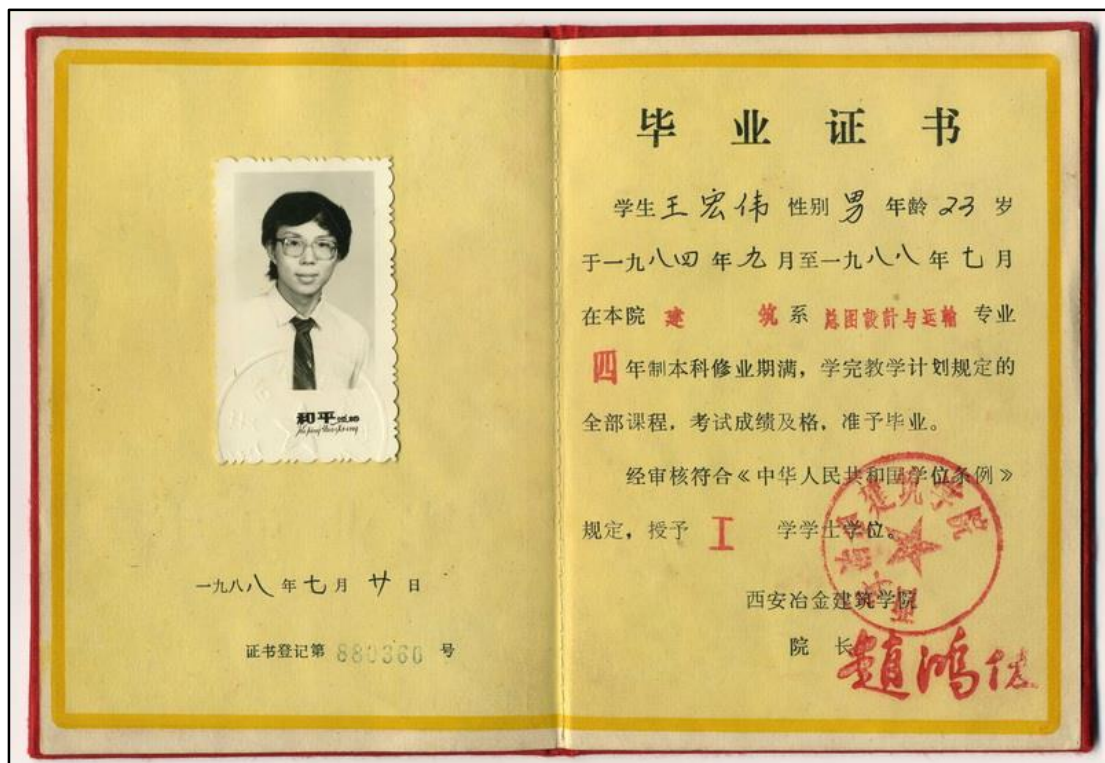 和平
一九八八年七月廿日
证书登记第 880360 号
毕业证书
学生王宏伟性别男年龄23岁
于一九八四年九月至一九八八年七月
在本院建筑系总图設計与运输专业
四年制本科修业期满，学完教学计划规定的
全部课程，考试成绩及格，准予毕业。
经审核符合《中华人民共和国学位条例》
规定，授予工学学士学位。
西安冶金建筑学院
院长
趙鴻